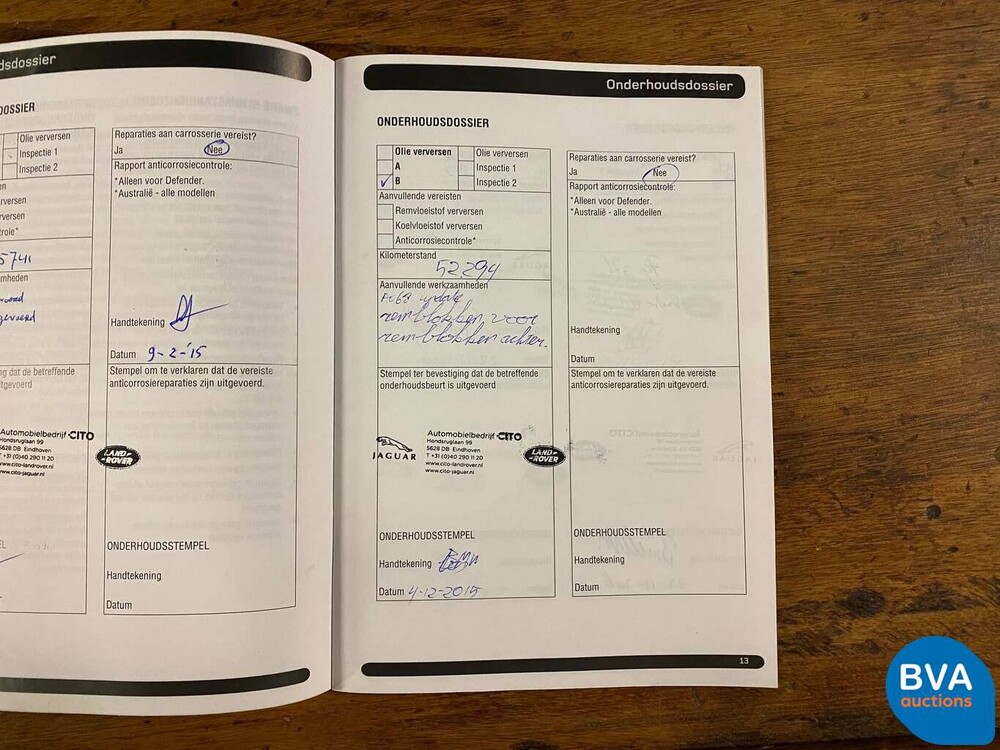 dsdossier
DOSSIER
Olie verversen
Inspectie 1
Inspectie 2
en
rversen
versen
trole*
5741
mheden
ng dat de betreffende
itgevoerd
Automobielbedrijf CITO
Hondsruglaan 99
5628 DB Eindhoven
T +31 (0)40 290 11 20
www.cito-landrover.nl
www.cito-jaguar.nl
LAND-
ROVER
EL
Reparaties aan carrosserie vereist?
Ja Nee
Rapport anticorrosiecontrole:
*Alleen voor Defender.
*Australië - alle modellen
Handtekening
Datum 9-2-'15
Stempel om te verklaren dat de vereiste
anticorrosiereparaties zijn uitgevoerd.
ONDERHOUDSSTEMPEL
Handtekening
Datum
Onderhoudsdossier
ONDERHOUDSDOSSIER
Olie verversen Olie verversen
A Inspectie 1
B Inspectie 2
Aanvullende vereisten
Remvloeistof verversen
Koelvloeistof verversen
Anticorrosiecontrole*
Kilometerstand
52294
Aanvullende werkzaamheden
update
remblokken voor
remblokken achter.
Stempel ter bevestiging dat de betreffende
onderhoudsbeurt is uitgevoerd
JAGUAR
Automobielbedrijf CITO
Hondsruglaan 99
5628 DB Eindhoven
T +31 (0)40 290 11 20
www.cito-landrover.nl
www.cito-jaguar.nl
LAND-
ROVER
ONDERHOUDSSTEMPEL
Handtekening
Datum 4-12-2015
Reparaties aan carrosserie vereist?
Ja Nee
Rapport anticorrosiecontrole:
*Alleen voor Defender.
*Australië - alle modellen
Handtekening
Datum
Stempel om te verklaren dat de vereiste
anticorrosiereparaties zijn uitgevoerd.
ONDERHOUDSSTEMPEL
Handtekening
Datum
13
BVA
auctions